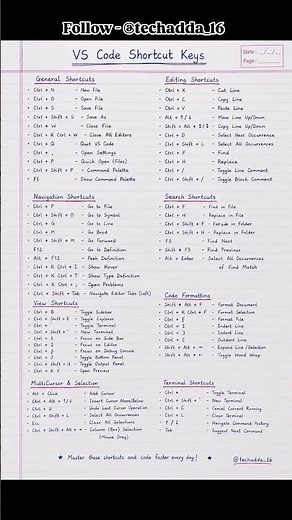 Follow - @techadda_16
VS Code Shortcut Keys
Date :
Page :
General Shortcuts
- Ctrl + N - New File
- Ctrl + O - Open File
- Ctrl + S - Save File
- Ctrl + Shift + S - Save As
- Ctrl + W - Close File
- Ctrl + K Ctrl + W - Close All Editors
- Ctrl + Q - Quit VS Code
- Ctrl + , - Open Settings
- Ctrl + P - Quick Open (Files)
- Ctrl + Shift + P - Command Palette
- F1 - Show Command Palette
Editing Shortcuts
- Ctrl + X - Cut Line
- Ctrl + C - Copy Line
- Ctrl + V - Paste Line
- Alt + ↑/↓ - Move Line Up/Down
- Shift + Alt + ↑/↓ - Copy Line Up/Down
- Ctrl + D - Select Next Occurrence
- Ctrl + Shift + L - Select All Occurrences
- Ctrl + F - Find
- Ctrl + H - Replace
- Ctrl + / - Toggle Line Comment
- Ctrl + Shift + / - Toggle Block Comment
Navigation Shortcuts
- Ctrl + P - Go to File
- Ctrl + Shift + O - Go to Symbol
- Ctrl + G - Go to Line
- Ctrl + M - Go
- Ctrl + Shift + M - Go Forward
- F12 - Go to Definition
- Alt + F12 - Peek Definition
- Ctrl + K Ctrl + I - Show Hover
- Ctrl + K Ctrl + T - Show Type Definition
- Ctrl + K Ctrl + ; - Open Problems
- Ctrl + Shift + Tab - Navigate Editor Tabs (left)
Search Shortcuts
- Ctrl + F - Find in File
- Ctrl + H - Replace in File
- Ctrl + Shift + F - in Folder
- Ctrl + Shift + H - Replace in Folder
- F3 - Find Next
- Shift + F3 - Find Previous
- Alt + Enter - Select All Occurrences
of Find Match
View Shortcuts
- Ctrl + B - Toggle Sidebar
- Ctrl + Shift + E - Toggle Explorer
- Ctrl + ` - Toggle Terminal
- Ctrl + Shift + ` - New Terminal
- Ctrl + - Focus on Side Bar
- Ctrl + - Focus on Editor
- Ctrl + - Focus on Debug Console
- Ctrl + J - Toggle Bottom Panel
- Ctrl + Shift + U - Toggle Output Panel
- Ctrl + K V - Open Preview
Code Formatting
- Shift + Alt + F - Format Document
- Ctrl + K Ctrl + F - Format Selection
- Ctrl + - Format File
- Ctrl + - Indent Line
- Ctrl + - Indent Line
- Ctrl + - Outdent Line
- Shift + Alt + → - Expand Line/Selection
- Shift + Alt + ← - Toggle Word Wrap
MultiCursor & Selection
- Alt + Click - Add Cursor
- Ctrl + Alt + ↑/↓ - Insert Cursor Above/Below
- Ctrl + U - Undo Last Cursor Operation
- Ctrl + Shift + L - Select All Occurrences
- Esc - Clear All Selections
- Ctrl + Shift + Alt + → - Column (Box) Selection
(Mouse Drag)
Terminal Shortcuts
- Ctrl + ` - Toggle Terminal
- Ctrl + Shift + ` - New Terminal
- Ctrl + C - Cancel Current Running
- Ctrl + L - Clear Terminal
- ↑ / ↓ - Navigate Command History
- Tab - Suggest Next Command
★ Master these shortcuts and code faster every day! ★
@techadda_16